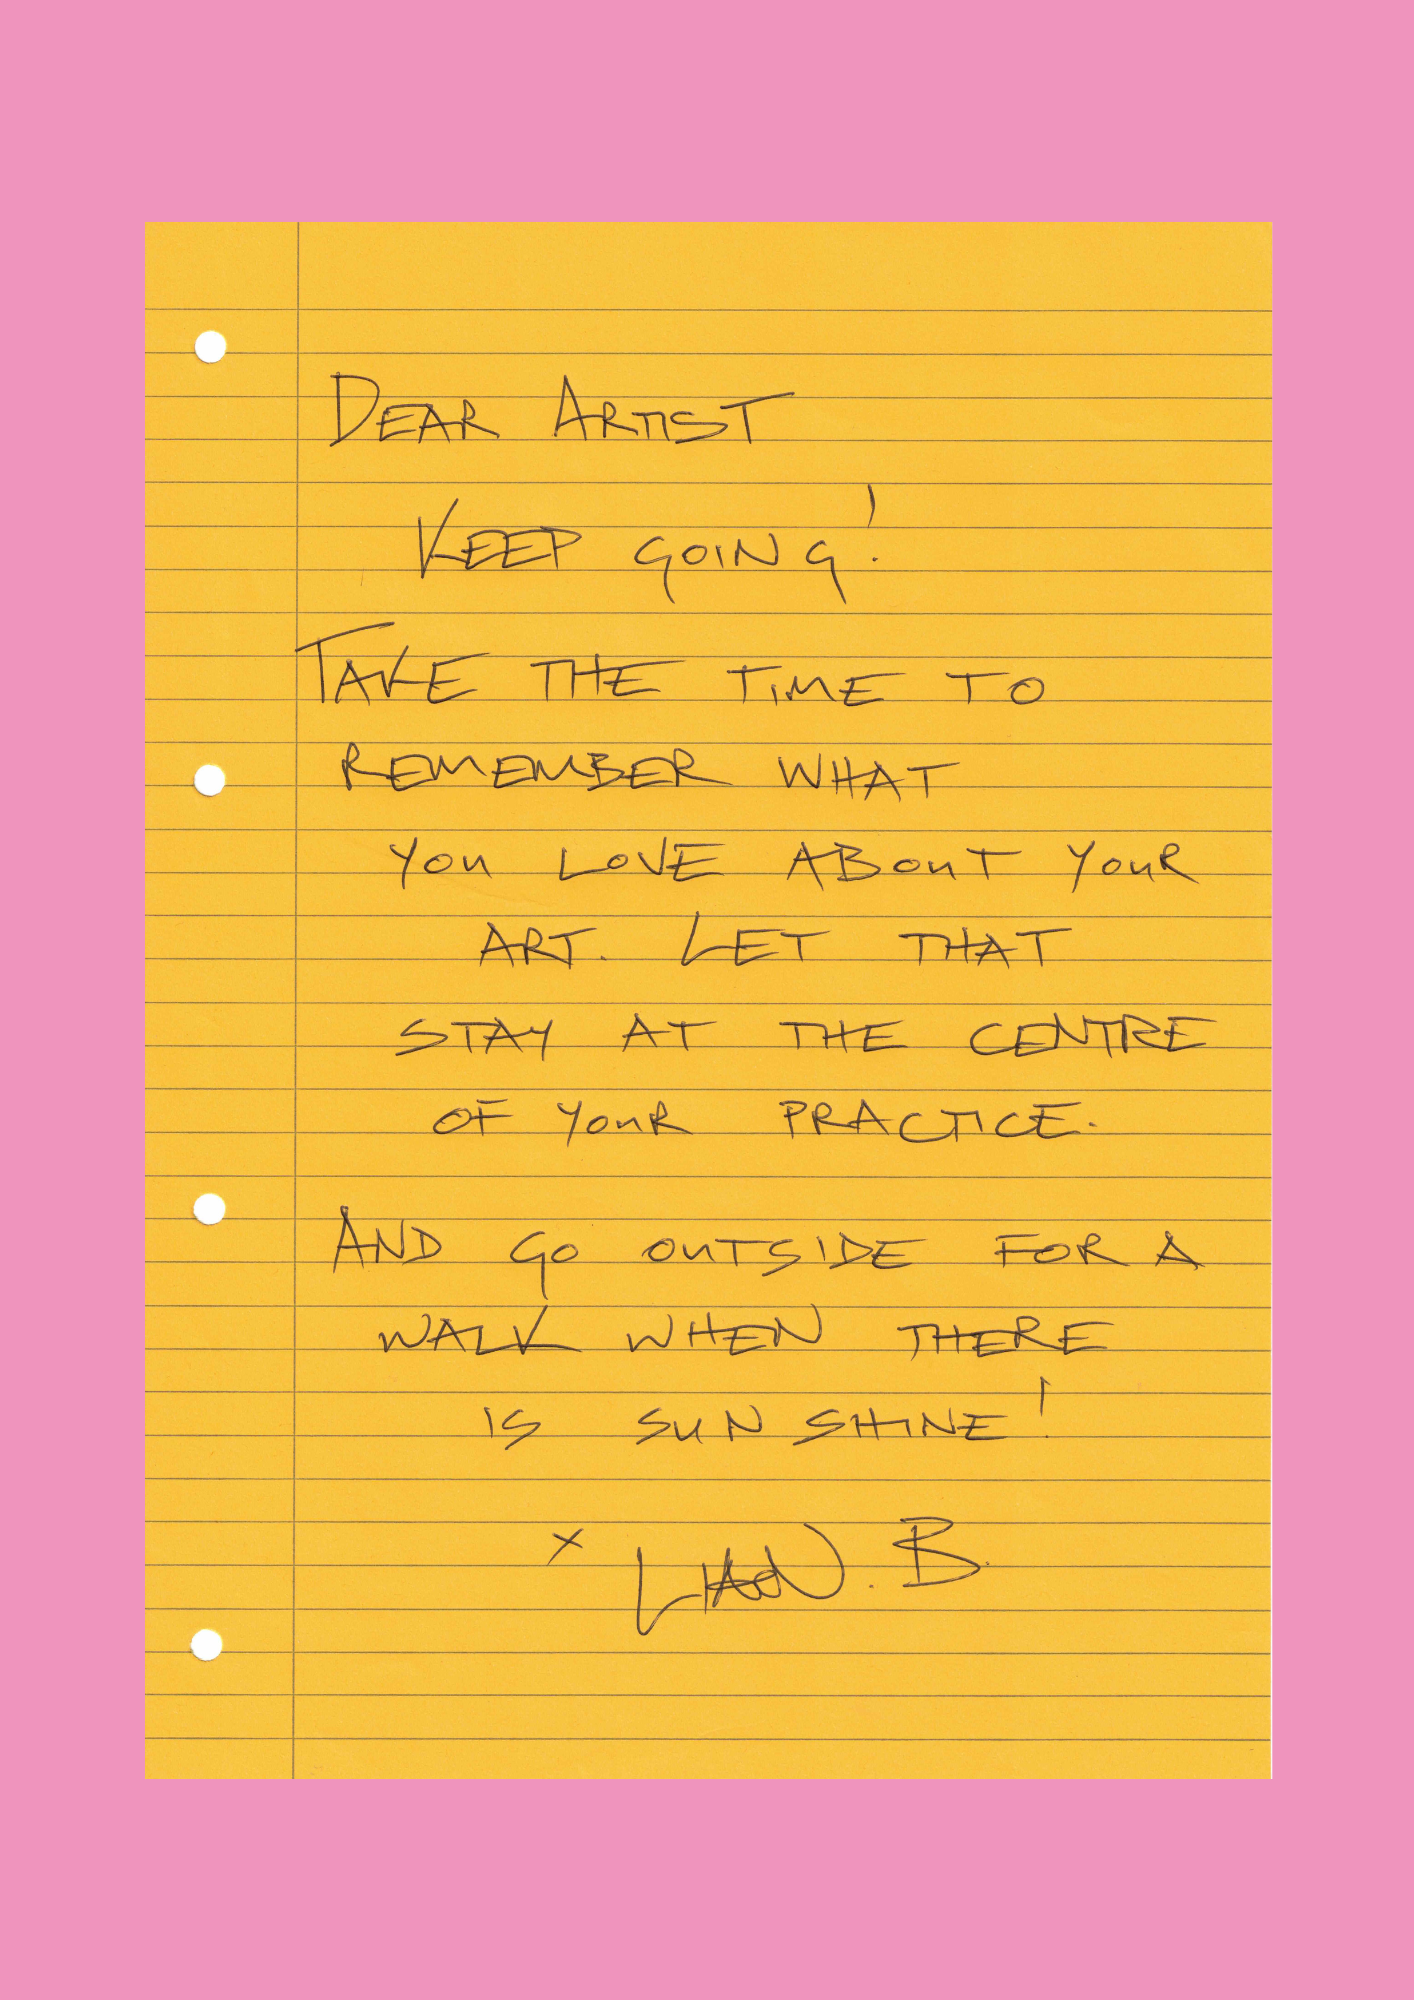 DEAR ARTIST
KEEP GOING!
TAKE THE TIME TO
REMEMBER WHAT
YOU LOVE ABOUT YOUR
ART. LET THAT
STAY AT THE CENTRE
OF YOUR PRACTICE.
AND GO OUTSIDE FOR A
WALK WHEN THERE
IS SUNSHINE!
x LIAN. B.